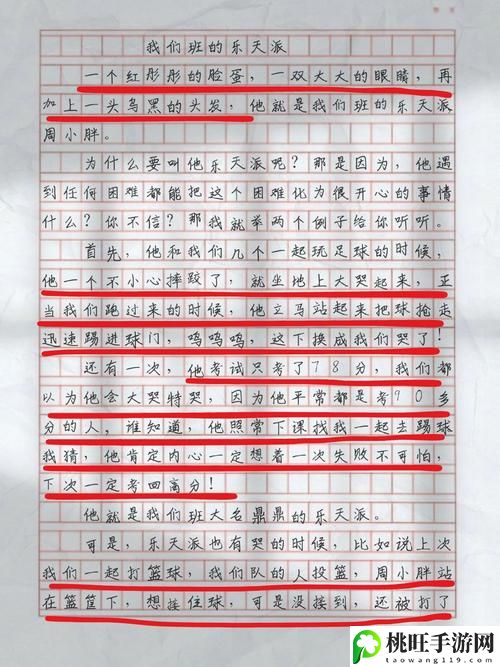 我们班的乐天派
一个红彤彤的脸蛋，一双大大的眼睛，再
加上一头乌黑的头发，他就是我们班的乐天派
周小胖。
为什么要叫他乐天派呢？那是因为，他遇
到任何困难都能把这个困难化为很开心的事情
什么？你不信？那我就举两个例子给你听听。
首先，他和我们几个一起玩足球的时候，
他一个不小心摔跤了，就坐地上大哭起来，正
当我们跑过来的时候，他立马站起来把球抢走
迅速踢进球门，呜呜呜，这下换成我们哭了！
还有一次，他考试只考了78分，我们都
以为他会大哭特哭，因为他平常都是考90多
分的人，谁知道，他照常下课找我一起去踢球
我猜，他肯定内心一定想着一次失败不可怕，
下次一定考回高分！
他就是我们班大名鼎鼎的乐天派。
可是，乐天派也有哭的时候，比如说上次
我们一起打篮球，我们队的人投篮，周小胖站
在篮筐下，想接住球，可是没接到，还被打了
桃旺手游网
taowang119.com